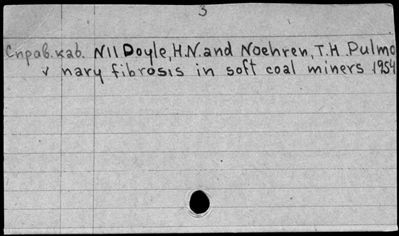 3
Справ.каб. N11 Doyle, H.N. and Noehren, T.H. Pulmo
v nary fibrosis in soft coal miners 1954